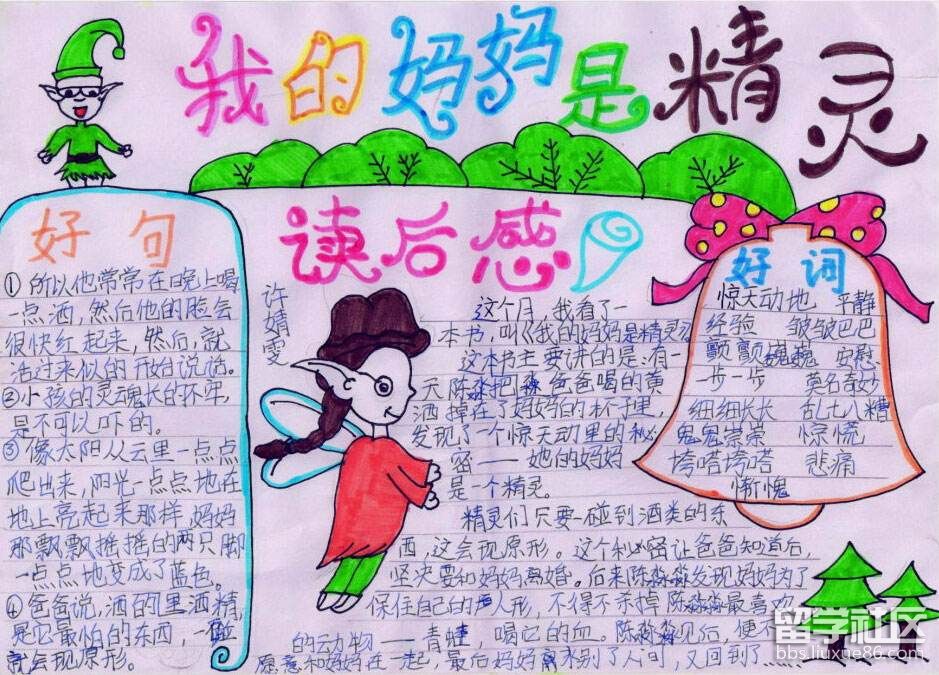 我的妈妈是精灵
好句
①所以他常常在晚上喝
一点酒,然后他的脸会
很快红起来,然后,就
活过来似的开始说话。
②小孩的灵魂长的不牢,
是不可以吓的。
③像太阳从云里一点点
爬出来,阳光一点点地在
地上亮起来那样,妈妈
那飘飘摇摇的两只脚
一点点地变成了蓝色。
④爸爸说,酒的里酒精,
是它最怕的东西,一碰
就会现原形。
读后感
许婧雯
这个月,我看了一
本书,叫《我的妈妈是精灵》
这本书主要讲的是:有一
天陈淼淼把 爸爸喝的黄
酒掉在了妈妈的杯子里,
发现了一个惊天动里的秘
密——她的妈妈
是一个精灵。
精灵们只要一碰到酒类的东
西,这会现原形。这个秘密让爸爸知道后,
坚决要和妈妈离婚。后来陈淼淼发现妈妈为了
保住自己的人形,不得不杀掉陈淼淼最喜欢
的动物——青蛙,喝它的血。陈淼淼见后,便不
愿意和妈妈在一起,最后妈妈离别了人间,又回到了……
好词
惊天动地 平静
经验 皱皱巴巴
颤颤巍巍 安慰
一步一步 莫名奇妙
细细长长 乱七八糟
鬼鬼祟祟 惊慌
垮嗒垮嗒 悲痛
惭愧
留学社区
bbs.liuxue86.com